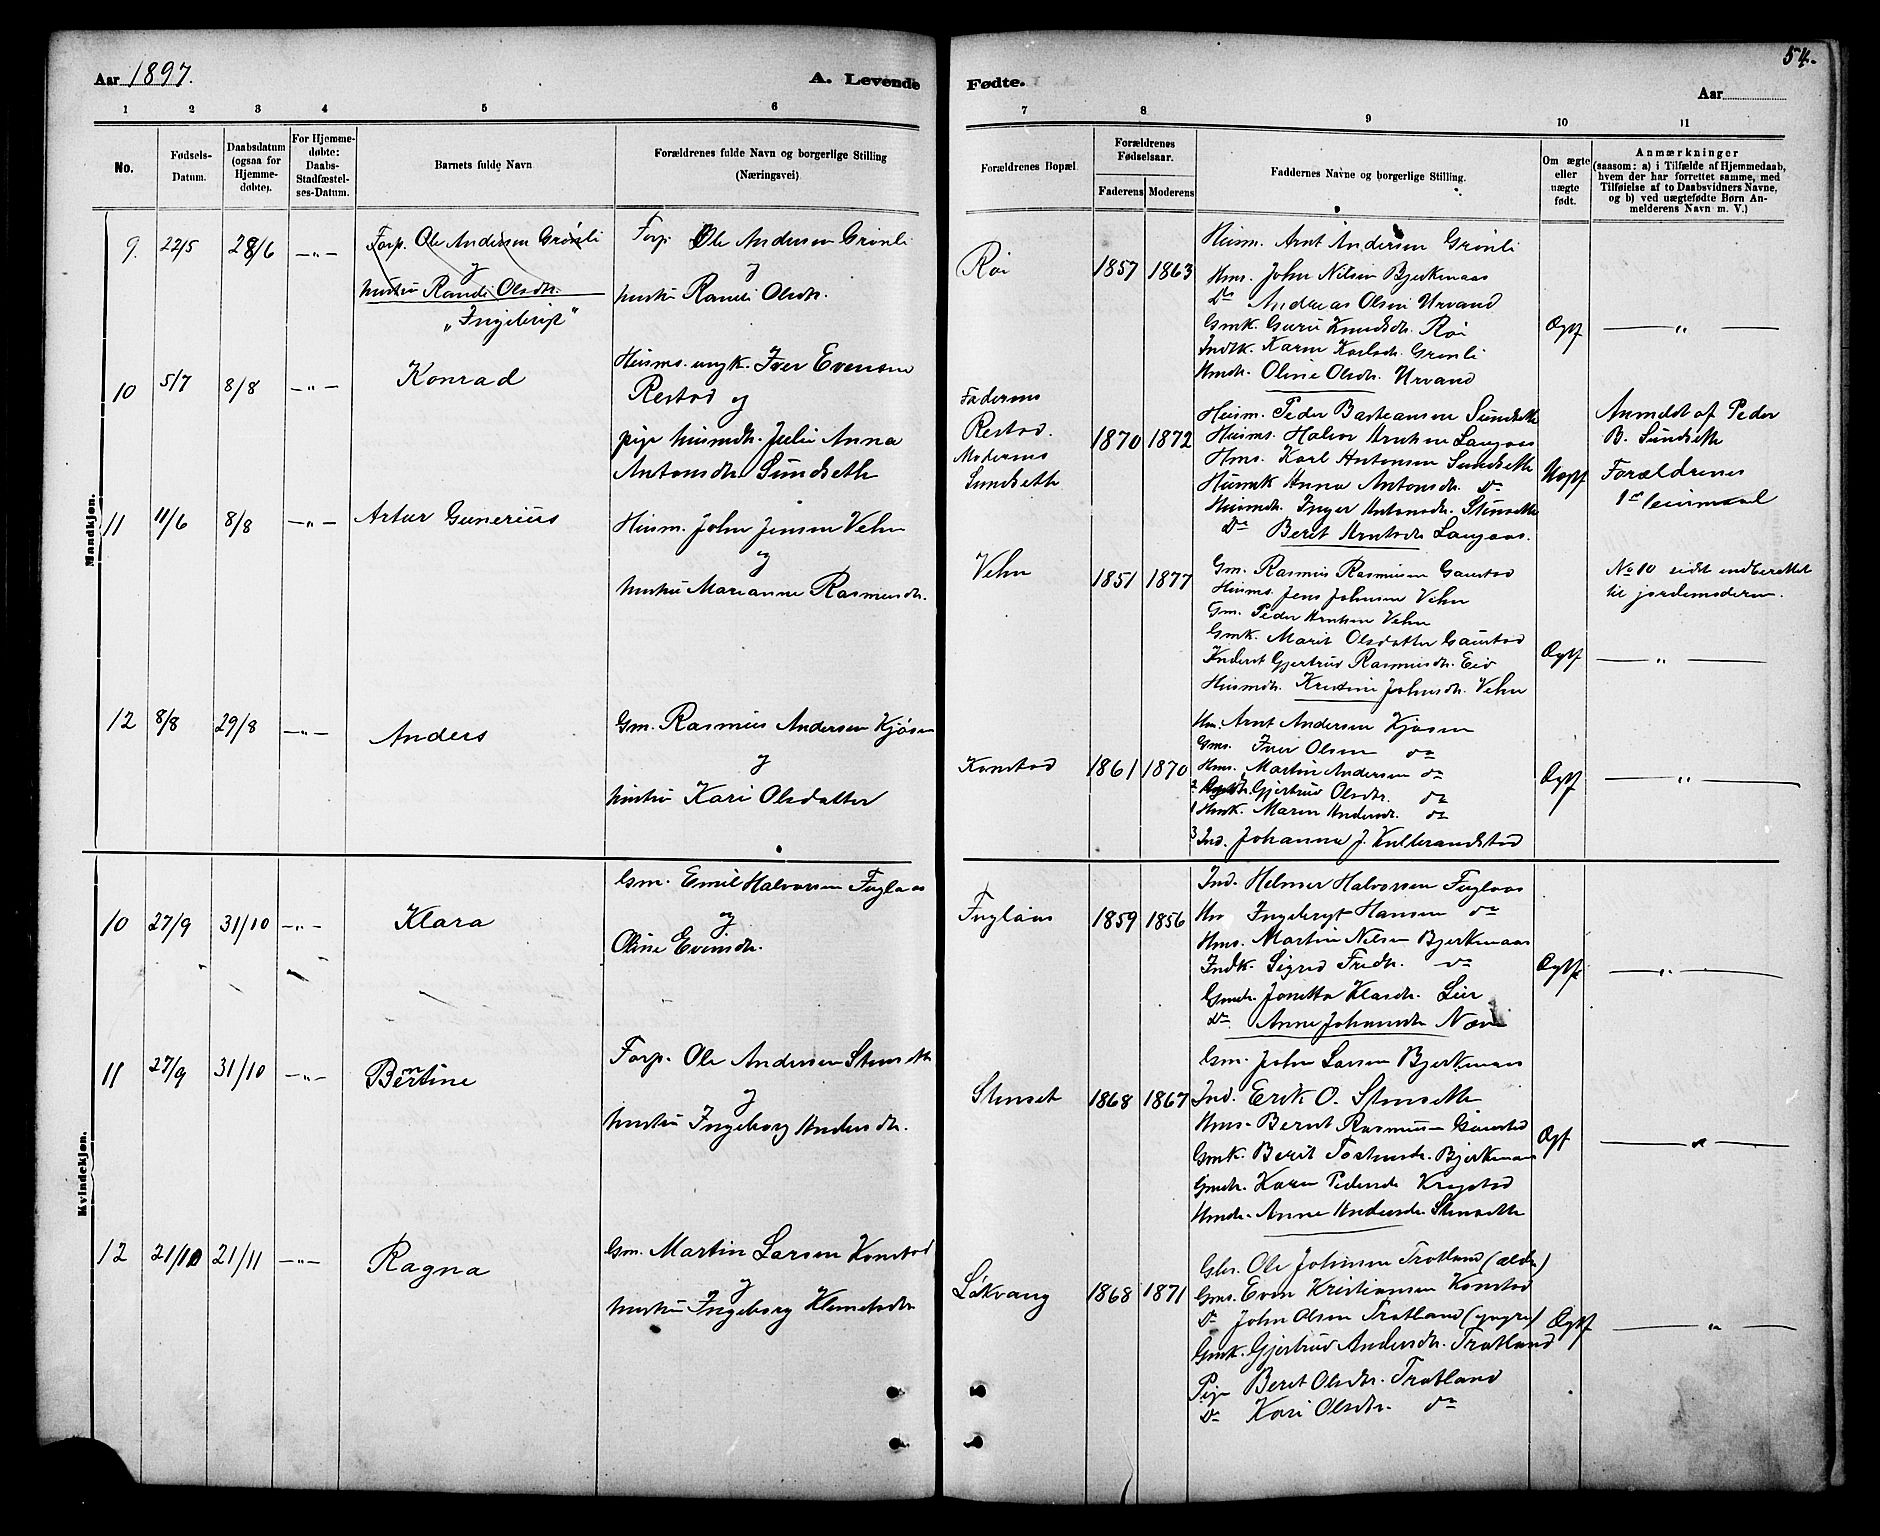 54.
Aar 1897.
A. Levende
Fødte.
Aar
1 2 3 4 5 6 7 8 9 10 11
No.
Fødsels-Datum.
Daabsdatum (ogsaa for Hjemmedøbte).
For Hjemmedøbte: Daabs-Stadfæstelses-Datum.
Barnets fulde Navn
Forældrenes fulde Navn og borgerlige Stilling (Næringsvei)
Forældrenes Bopæl.
Forældrenes Fødselsaar.
Faderens
Moderens
Faddernes Navne og borgerlige Stilling.
Om ægte eller uægte født.
Anmærkninger
(saasom: a) i Tilfælde af Hjemmedaab, hvem der har forrettet samme, med Tilføielse af to Daabsvidners Navne, og b) ved uægtefødte Børn Anmelderens Navn m. V.)
Mandkjøn.
9. 22/5 28/6 —„—
Forp. Ole Andersen Grønli
og
hustru Randi Olsdtr.
„Ingebrigt"
Forp. Ole Andersen Grønli
og
hustru Randi Olsdtr.
Røi
1857 1863
Husm. Arnt Andersen Grønli
Hms. John Nilsen Bjerkmaas
Do Andreas Olsen Urvand
Gmk. Guru Knudsdtr. Røi
Indk. Karen Karlsdtr. Grønli
Hmdr. Oline Olsdtr. Urvand
Ægtf
—„—
10 5/7 8/8 —„—
Konrad
Husms. ungk. Iver Evensen
Restad og
pige husmdtr. Julie Anna
Antonsdtr. Sundseth
Faderens
Restad.
Moderens
Sundseth
1870 1872
Husm. Peder Basteansen Sundseth
Husms. Halvor Arntsen Langaas
Hms. Karl Antonsen Sundseth
Husmk Anna Antonsdtr. Do
Husmdtr. Inger Antonsdtr. Stenseth
Do Beret Arntsdtr Langaas.
Uægtf
Anmeldt af Peder
B. Sundseth
Forældrenes
1ste leiermaal
11 11/6 8/8 —„—
Artur Gunerius
Husm. John Jensen Vehn
og
hustru Marianne Rasmusdtr.
Vehn
1851 1877
Gm. Rasmus Rasmusen Gaustad
Husms. Jens Johnsen Vehn
Gm. Peder Arntsen Vehn
Gmk. Marit Olsdatter Gaustad
Gjertrud Rasmusdtr. Eid
Husmdtr. Kristine Johnsdtr. Vehn
Ægtf
No 10 sidst indberettet
til jordemoderen.
—„—
12 8/8 29/8 —„—
Anders
Gm. Rasmus Andersen Kjøsen
og
hustru Kari Olsdatter
Konstad
1861 1870
Hm. Arnt Andersen Kjøsen
Gms. Iver Olsen do
Hms. Martin Andersen do
2 Gjertrud Olsdtr. do
1 Hmk. Maren Andersdtr. do
3 Ind. Johanna J. Kulbrandstad
Ægtf
—„—
Kvindekjøn.
10 27/9 31/10 —„—
Klara
Gm. Emil Halvorsen Fuglaas
og
Oline Evensdtr.
Fuglaas
1859 1856
Ind. Helmer Halvorsen Fuglaas
Hm Ingebrigt Hansen do
Hms. Martin Nilsen Bjerkmaas
Indk. Sigrid Fredr. do
Gmdr. Jonetta Klasdtr. Lier
Do. Anne Johansdtr Næve
Ægtf
—„—
11 27/9 31/10 —„—
Berntine
Forp. Ole Andersen Stenseth
og
hustru Ingeborg Andersdtr.
Stenset
1868 1867
Gm. John Larsen Bjerkmaas
Ind. Erik O. Stenseth
Hms. Bernt Rasmusen Gaustad
Gmk. Berit Tostensdtr. Bjerkmaas
Gmdr. Karen Pedersdtr Krogstad
Hmdr. Anne Andersdtr. Stenseth
Ægtf
—„—
12 21/10 21/11 —„—
Ragna
Gm. Martin Larsen Konstad
og
hustru Ingeborg Klemetsdtr
Løkvang
1868 1871
Gbr. Ole Johnsen Tratland (ældre)
Gms. Even Kristiansen Konstad
Do John Olsen Tratland (yngre)
Gmk. Gjertrud Andersdtr. Tratland
Pige Beret Olsdtr. Tratland
Do Kari Olsdtr. do
Ægtf
—„—